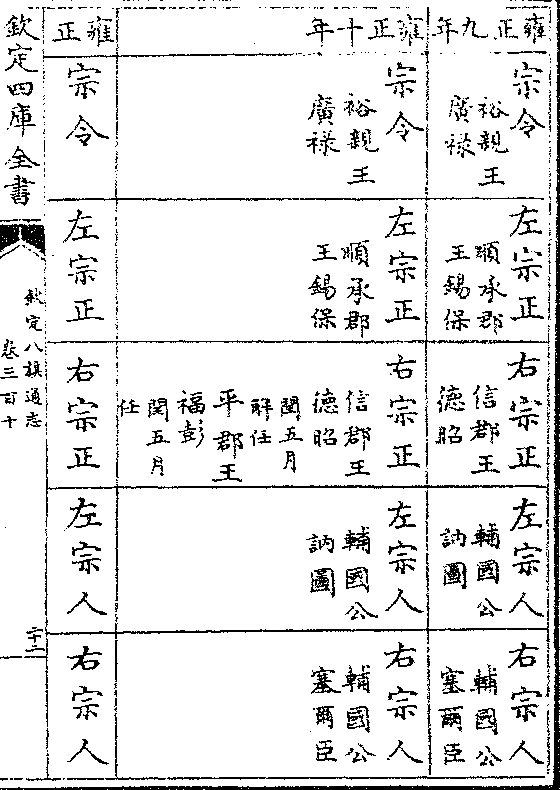 雍正九年
宗令
裕親王
廣禄
左宗正
順承郡
王錫保
右宗正
信郡王
德昭
左宗人
輔國公
訥圖
右宗人
輔國公
塞爾臣
雍正十年
宗令
裕親王
廣禄
左宗正
順承郡
王錫保
右宗正
信郡王
德昭
閏五月
解任
平郡王
福彭
閏五月
任
左宗人
輔國公
訥圖
右宗人
輔國公
塞爾臣
雍正
宗令
左宗正
右宗正
左宗人
右宗人
欽定四庫全書
欽定八旗通志
卷三百十